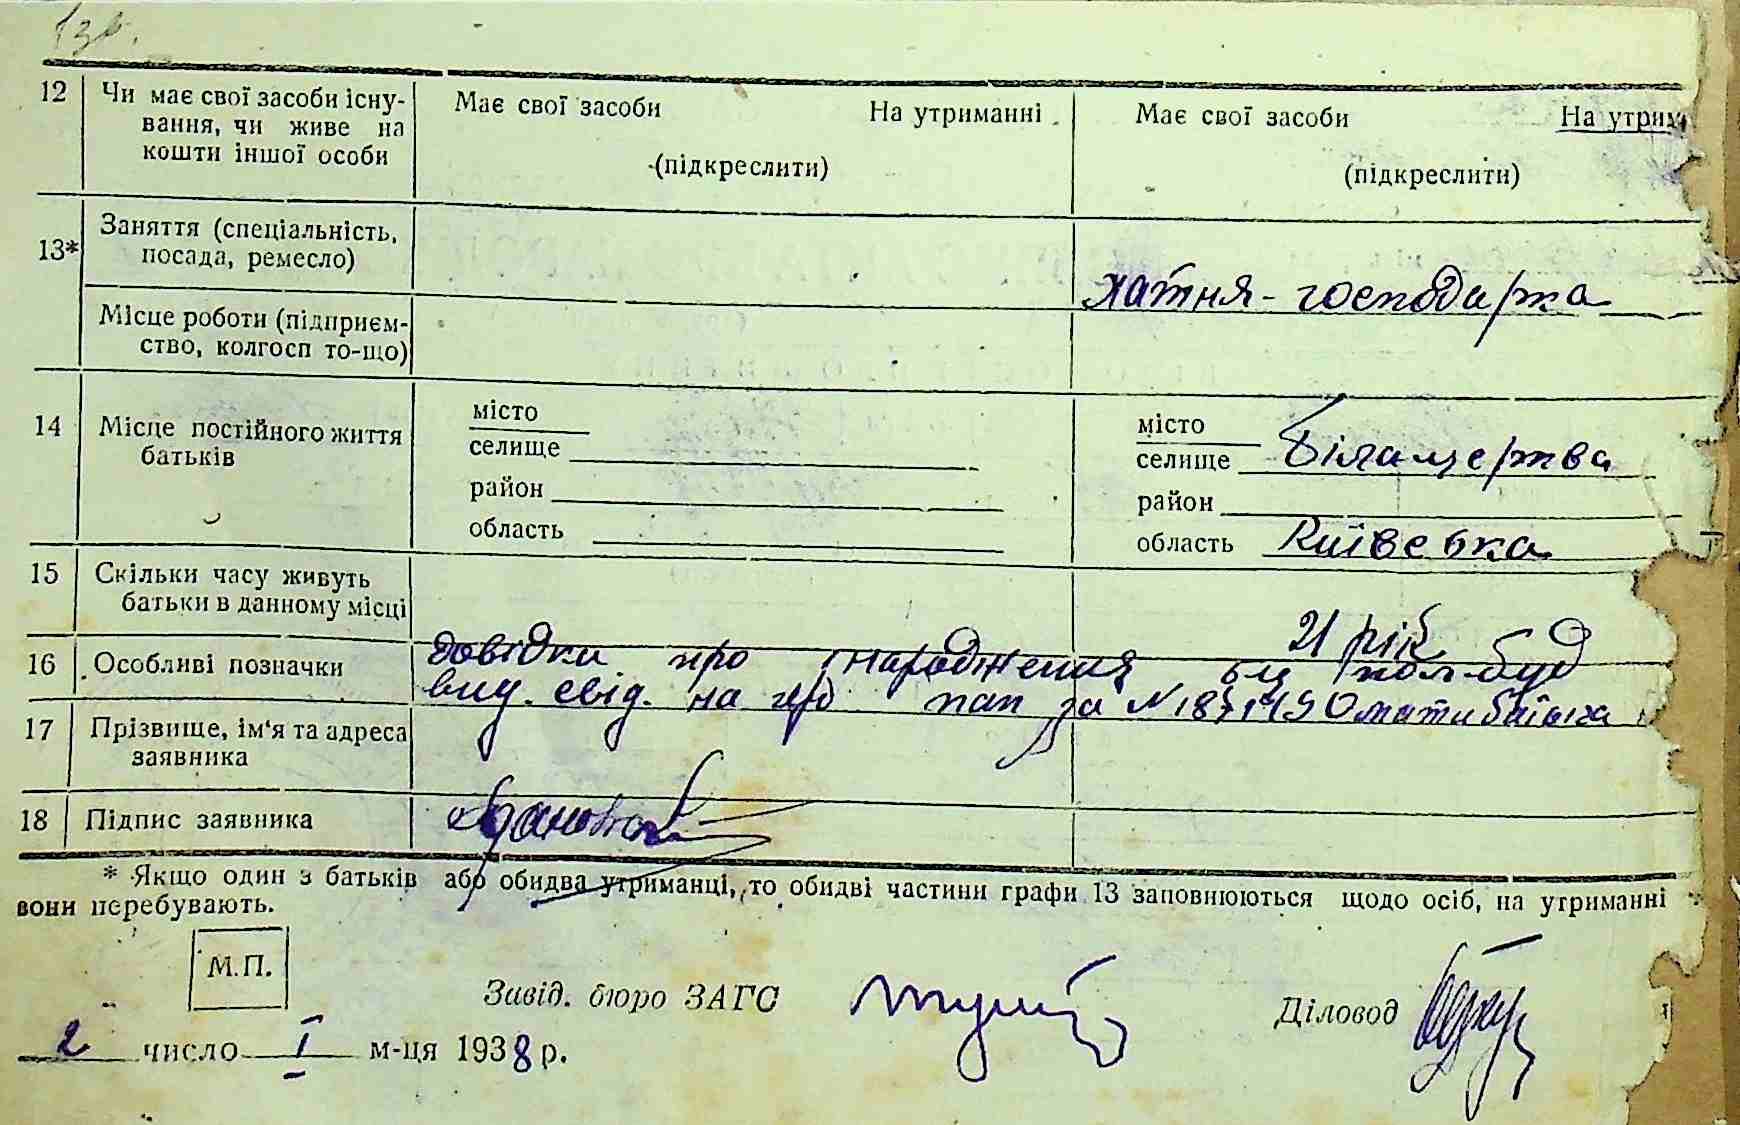 12 Чи має свої засоби існу- Має свої засоби На утриманні Має свої засоби На утрим
вання, чи живе на
кошти іншої особи (підкреслити) (підкреслити)
13* Заняття (спеціальність,
посада, ремесло)
хатня - господарка
Місце роботи (підприєм-
ство, колгосп то-що)
14 Місце постійного життя
батьків
місто
селище
район
область
місто
селище Білацерква
район
область Київська
15 Скільки часу живуть
батьки в данному місці
21 рік
16 Особливі позначки довідки про народження
вид. свід. на за №
17 Прізвище, ім'я та адреса
заявника
18 Підпис заявника
* Якщо один з батьків або обидва утриманці, то обидві частини графи 13 заповнюються щодо осіб, на утриманні
вони перебувають.
М.П.
Завід. бюро ЗАГС Діловод
2 число I м-ця 1938 р.